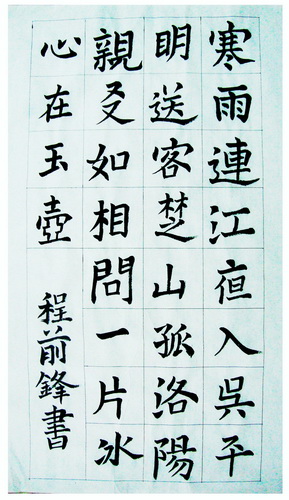 寒雨連江夜入吳平
明送客楚山孤洛陽
親友如相問一片冰
心在玉壺
程前鋒書